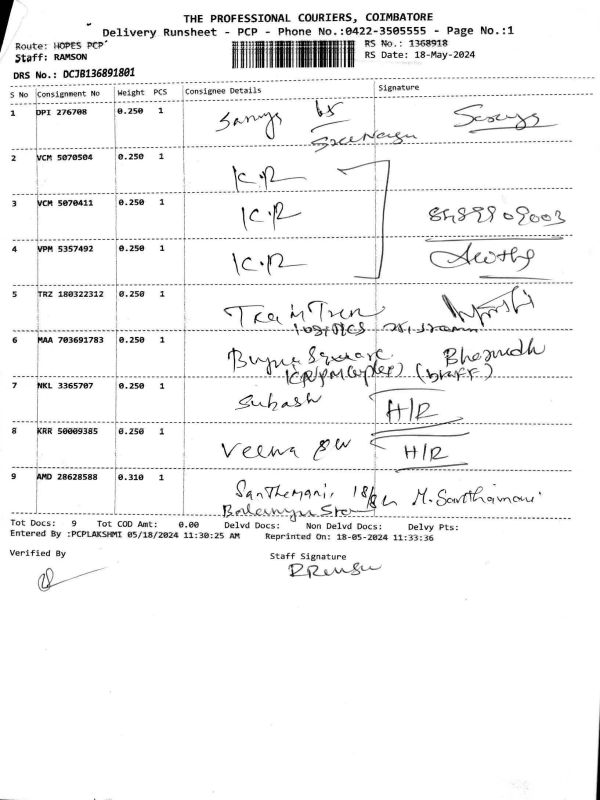 THE PROFESSIONAL COURIERS, COIMBATORE
Delivery Runsheet - PCP - Phone No.:0422-3505555 - Page No.:1
Route: HOPES PCP
RS No.: 1368918
Staff: RAMSON
RS Date: 18-May-2024
DRS No.: DCJB136891801
S No Consignment No Weight PCS Consignee Details Signature
1 DPI 276708 0.250 1
2 VCM 5070504 0.250 1 K.R
3 VCM 5070411 0.250 1 K.R 8489909003
4 VPM 5357492 0.250 1 K.R
5 TRZ 180322312 0.250 1
6 MAA 703691783 0.250 1 Square
(staff)
7 NKL 3365707 0.250 1 Subash H/R
8 KRR 50009385 0.250 1 Veena H/R
9 AMD 28628588 0.310 1 Santhamani M. Santhamani
Tot Docs: 9 Tot COD Amt: 0.00 Delvd Docs: Non Delvd Docs: Delvy Pts:
Entered By :PCPLAKSHMI 05/18/2024 11:30:25 AM Reprinted On: 18-05-2024 11:33:36
Verified By Staff Signature